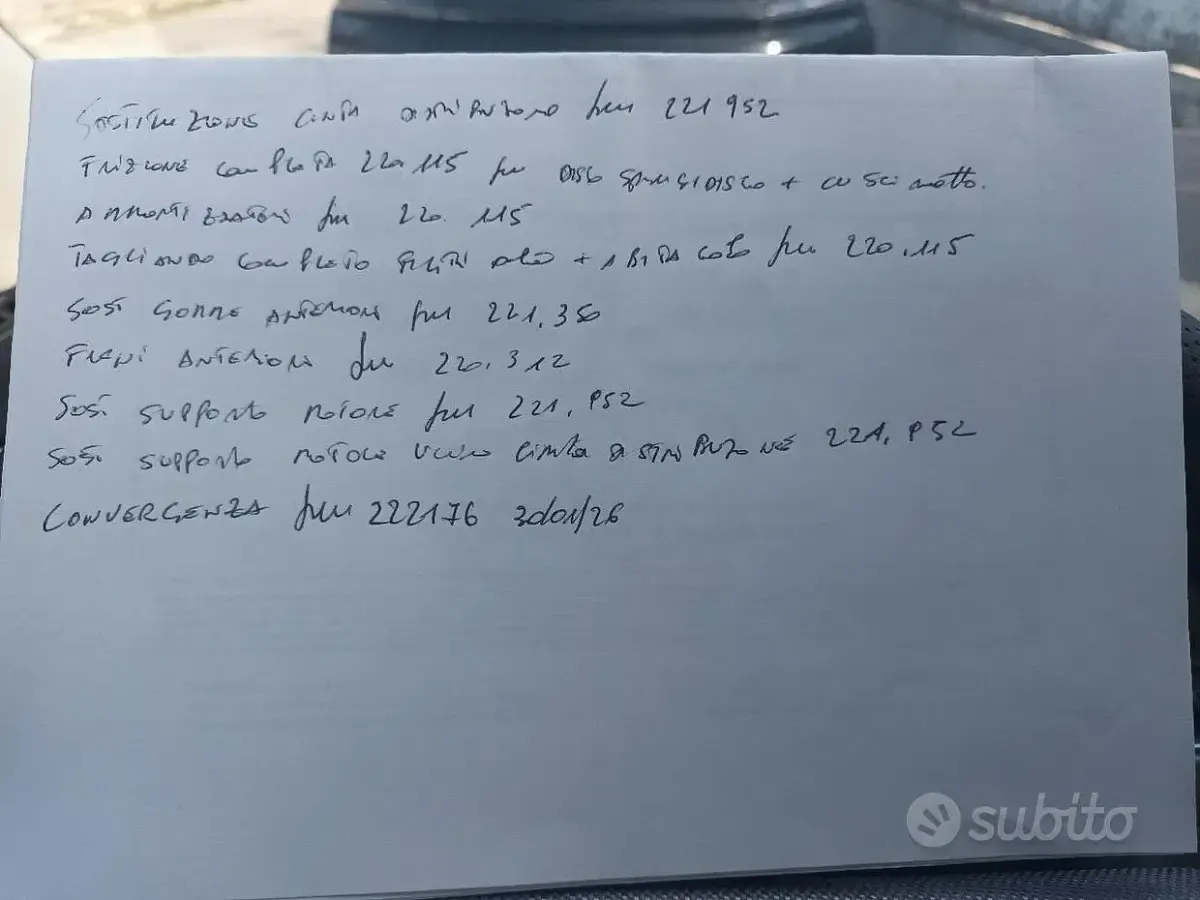 SOSTITUZIONE CINTA DISTRIBUZIONE km 221 952
FRIZIONE COMPLETA 220.115 km DISCO SPINGIDISCO + CUSCINETTO.
AMMORTIZZATORI km 220.115
TAGLIANDO COMPLETO FILTRI OLIO + ABITACOLO km 220.115
SOST GOMME ANTERIORI km 221.350
FRENI ANTERIORI km 220.312
SOST SUPPORTO MOTORE km 221.952
SOST SUPPORTO MOTORE CINTA DISTRIBUZIONE 221.952
CONVERGENZA km 222176 30/01/26
subito